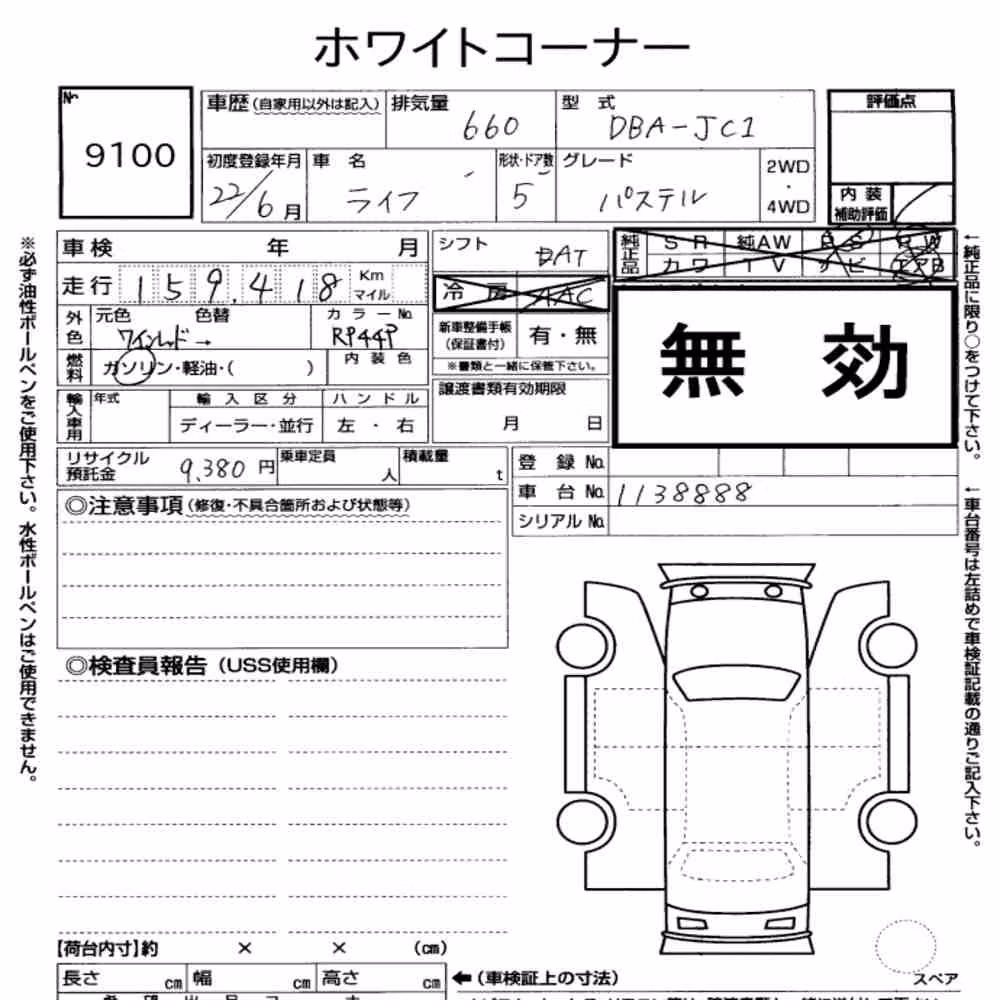 ホワイトコーナー
№
9100
車歴(自家用以外は記入)
排気量
660
型式
DBA-JC1
評価点
初度登録年月
22/6月
車名
ライフ
形状・ドア数
5
グレード
パステル
2WD
・
4WD
内装
補助評価
車検 年 月
シフト
純正品
SR 純AW
カワ TV ナビ
走行 159.418 Km
マイル
冷房 AAC
外色
元色 色替
ワインレッド→
カラーNo.
RP44P
新車整備手帳
(保証書付)
有・無
※書類と一緒に保管下さい。
無効
燃料
ガソリン・軽油・( )
内装色
譲渡書類有効期限
月 日
輸入車用
年式
輸入区分
ディーラー・並行
ハンドル
左・右
リサイクル
預託金
9,380円
乗車定員
人
積載量
t
登録No.
車台No. 1138888
シリアルNo.
◎注意事項(修復・不具合箇所および状態等)
◎検査員報告(USS使用欄)
【荷台内寸】約 × × (cm)
長さ cm 幅 cm 高さ cm
←(車検証上の寸法)
スペア
※必ず油性ボールペンをご使用下さい。水性ボールペンはご使用できません。
←純正品に限り○をつけて下さい。
←車台番号は左詰めで車検証記載の通りご記入下さい。